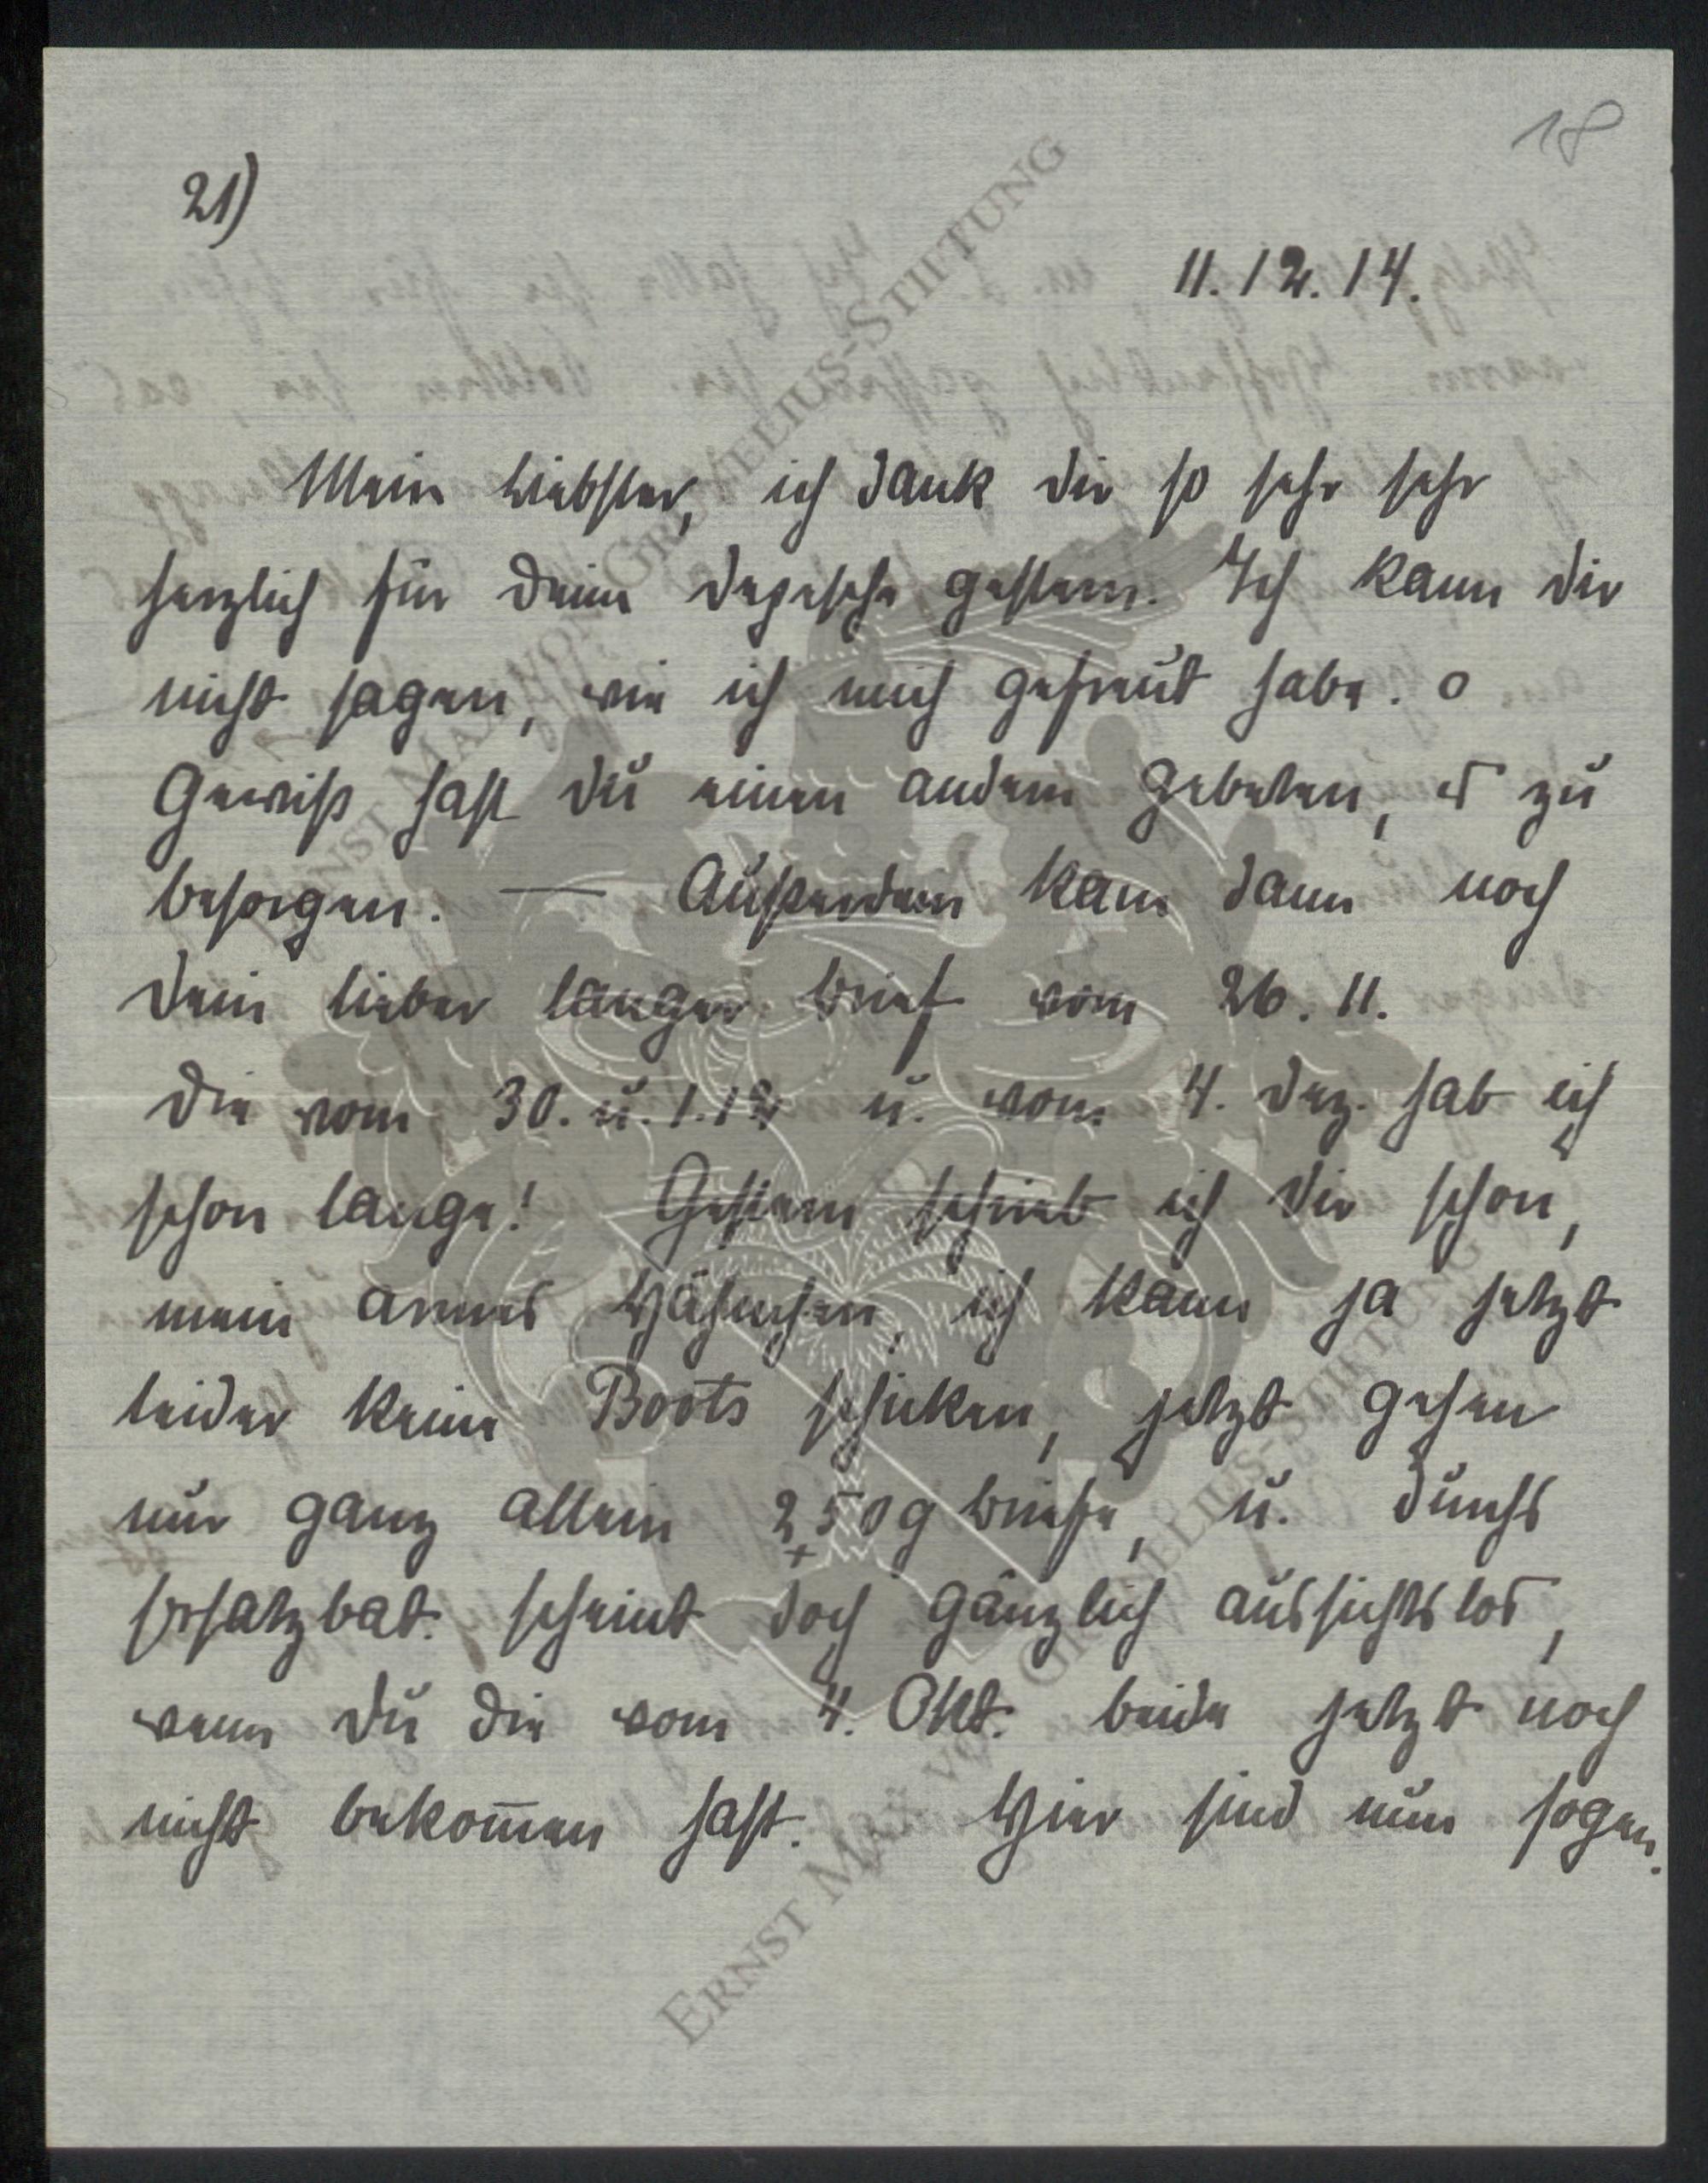 18
21)
11.12.14.
Mein Liebster, ich dank dir so sehr sehr
herzlich für deine Depesche gestern. Ich kann dir
nicht sagen, wie ich mich gefreut habe. o
Gewiß hast du einen andern gebeten, es zu
besorgen. — Außerdem kam dann noch
dein lieber langer Brief vom 26. 11.
Die vom 30. u. 1.12 u. vom 4. Dez. hab ich
schon lange! Gestern schrieb ich dir schon,
mein armes Hähnchen, ich kann ja jetzt
leider keine Boots schicken, jetzt gehen
nur ganz allein 250 g Briefe, u. durchs
Ersatzbat. scheint doch gänzlich aussichtslos,
wenn du die vom 4. Okt. beide jetzt noch
nicht bekom̅en hast. Hier sind nun sogen.
ERNST MAX VON GRUNELIUS-STIFTUNG
ERNST MAX VON GRUNELIUS-STIFTUNG